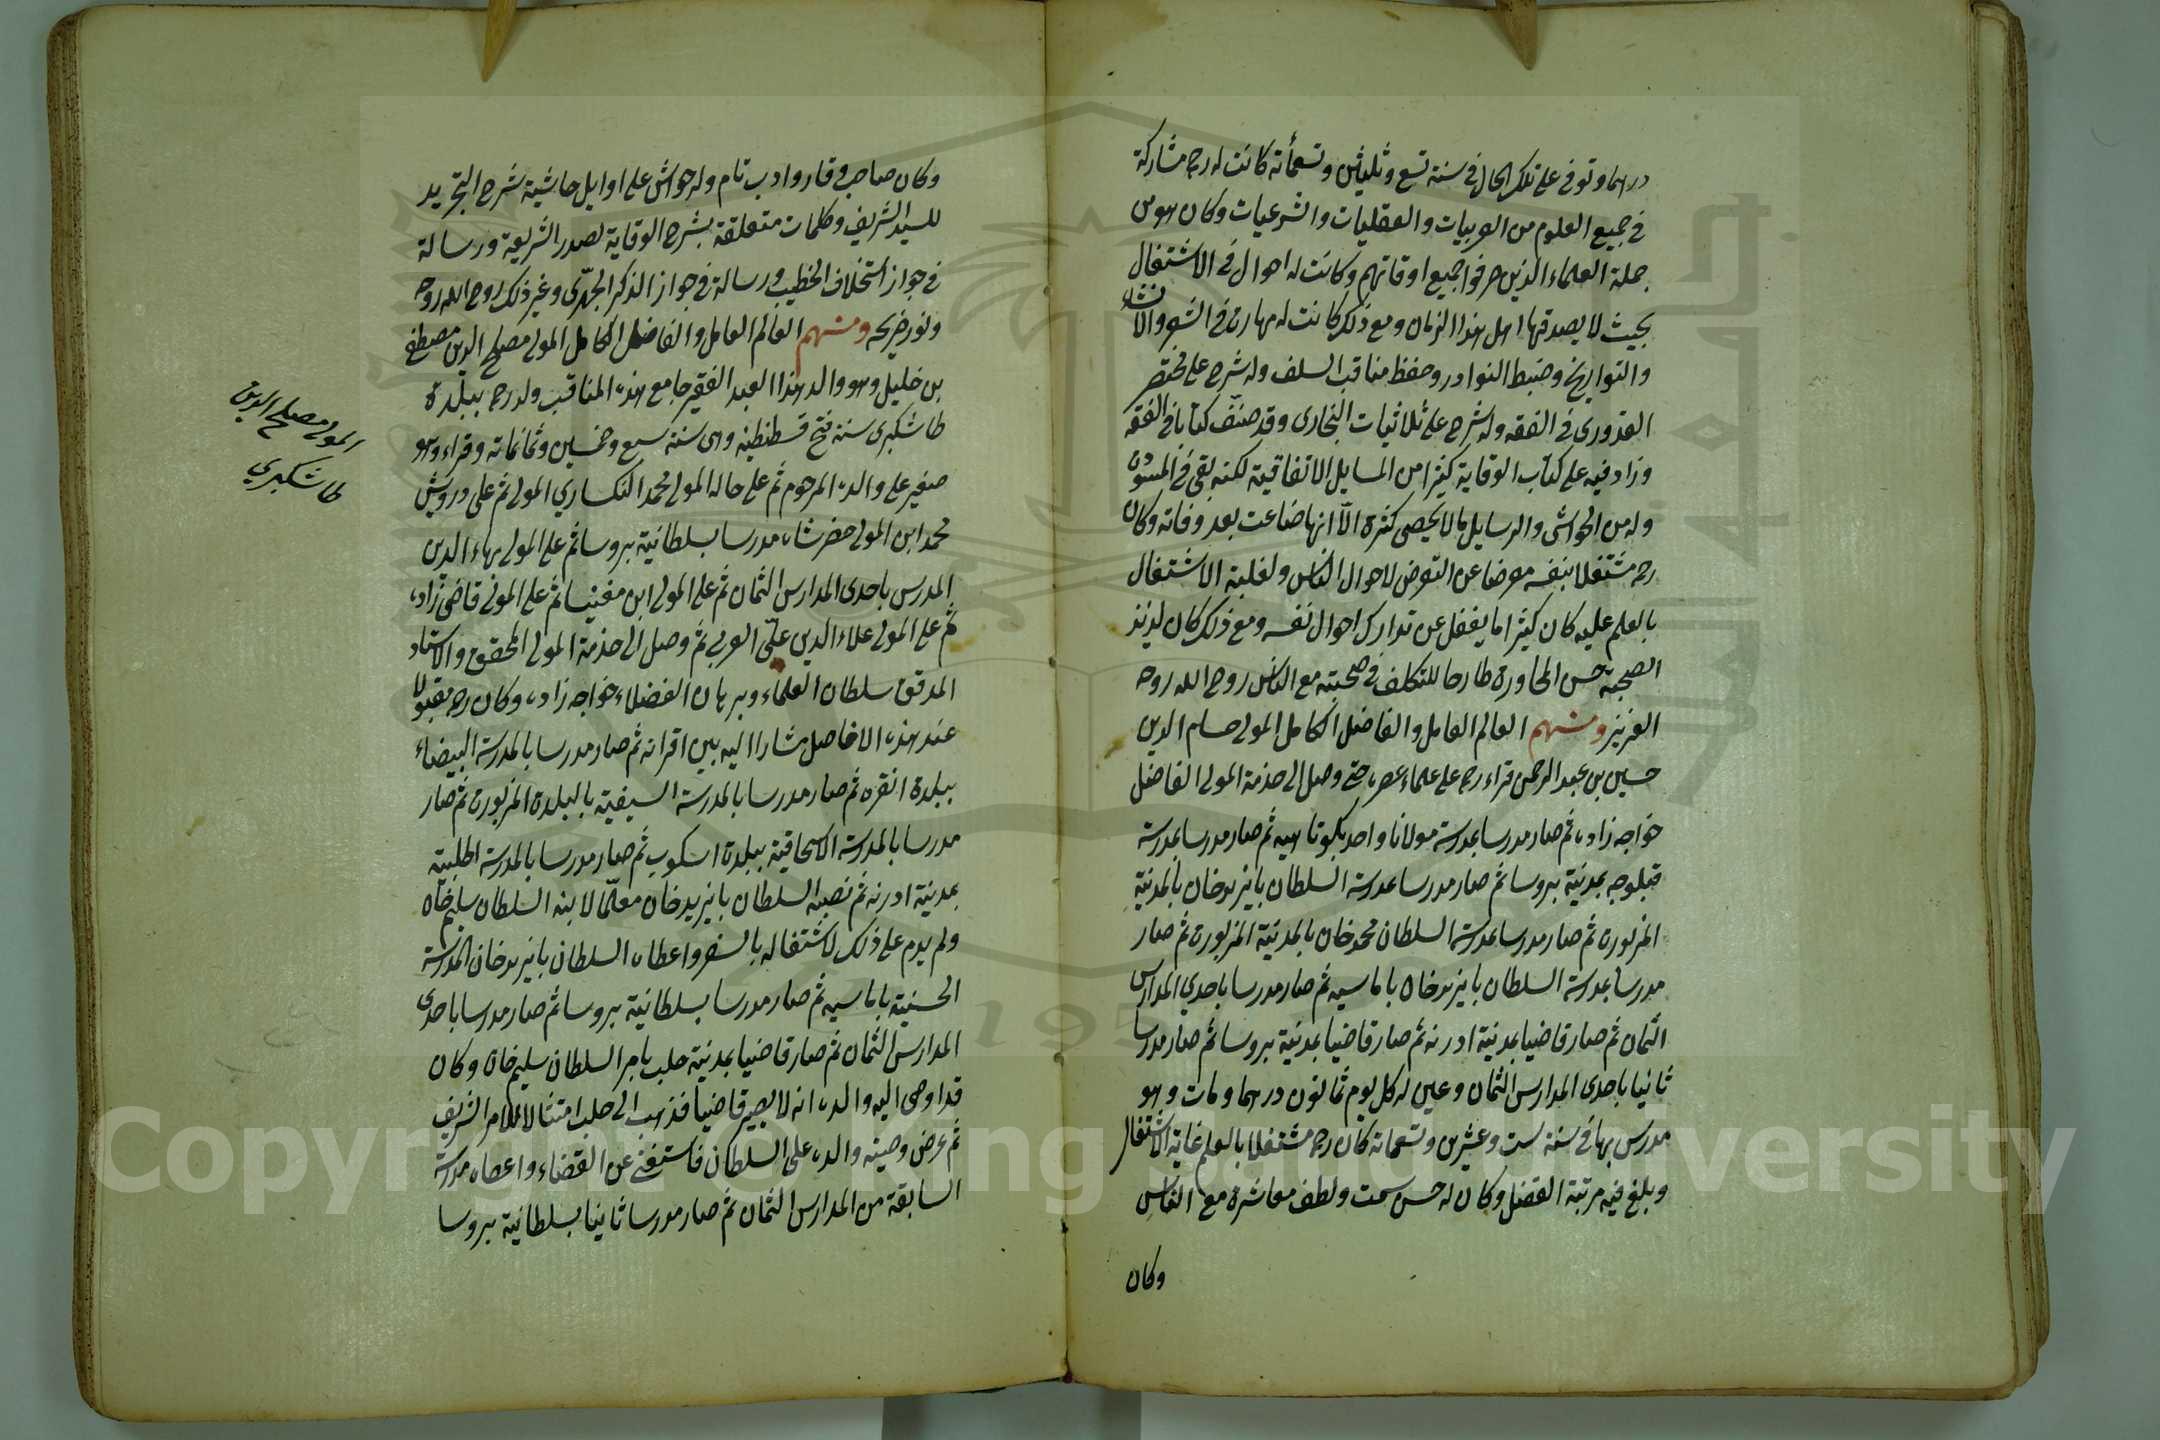 درهما وتوفى على تلك الحال فى سنة تسع وثلثين وتسعمأئة كانت له رحه مشاركة
فى جميع العلوم من العربيات والعقليات والشرعيات وكان هو من
جملة العلماء الذين صرفوا جميع اوقاتهم وكانت له احوال فى الاشتغال
بحيث لا يصدقها اهل هذا الزمان ومع ذلك كانت له مهارة فى الشعر والانشاء
والتواريخ وضبط النوادر وحفظ مناقب السلف وله شرح على مختصر
القدورى فى الفقه وله شرح على ثلاثيات البخارى وقد صنف كتابا فى الفقه
وزاد فيه على كتاب الوقاية كثيرا من المسايل الاتفاقية لكنه بقى فى المسودة
وله من الحواشى والرسايل ما لا يحصى كثرة الا انها ضاعت بعد وفاته وكان
رحه مشتغلا بنفسه معرضا عن التعرض لاحوال الناس ولغلبة الاشتغال
بالعلم عليه كان كثيرا ما يغفل عن تدارك احوال نفسه ومع ذلك كان لذيذ
الصحبة حسن المحاورة طارحا للتكلف فى صحبته مع الناس روح الله روحه
العزيز ومنهم العالم العامل والفاضل الكامل المولى حسام الدين
حسين بن عبد الرحمن قراء رحه على علماء عصره حتى وصل الى خدمة المولى الفاضل
خواجه زاده ثم صار مدرسا بمدرسة مولانا واحد بكوتاهيه ثم صار مدرسا بمدرسة
قبلوجه بمدينة بروسا ثم صار مدرسا بمدرسة السلطان بايزيد خان بالمدينة
المزبورة ثم صار مدرسا بمدرسة السلطان محمد خان بالمدينة المزبورة ثم صار
مدرسا بمدرسة السلطان بايزيد خان باماسيه ثم صار مدرسا باحدي المدارس
الثمان ثم صار قاضيا بمدينة ادرنه ثم صار قاضيا بمدينة بروسا ثم صار مدرسا
ثانيا باحدى المدارس الثمان وعين له كل يوم ثمانون درهما ومات وهو
مدرس بها فى سنة ست وعشرين وتسعمائة كان رحه مشتغلا بالعلم غاية الاشتغال
وبلغ فيه مرتبة الفضل وكان له حسن سمت ولطف معاشرة مع الناس
وكان
وكان صاحب وقار وادب تام وله حواش على اوايل حاشية شرح التجريد
للسيد الشريف وكلمات متعلقة بشرح الوقاية لصدر الشريعة ورسالة
فى جواز استخلاف الخطيب ورسالة فى جواز الذكر الجهرى وغير ذلك روح الله روحه
ونور ضريحه ومنهم العالم العامل والفاضل الكامل المولى مصلح الدين مصطفى
بن خليل وهو والد هذا العبد الفقير جامع هذه المناقب ولد رحه ببلدة
طاشكبرى سنة فتح قسطنطينه وهى سنة سبع وخمسين وثمانمائة وقراء وهو
صغير على والده المرحوم ثم على خاله المولى محمد النكساري المولى ثم على درويش
محمد ابن المولى خضر شاه مدرسا بسلطانية بروسا ثم على المولى بهاء الدين
المدرس باحدى المدارس الثمان ثم على المولى ابن مغنيسا ثم على المولى قاضى زاده
ثم على المولى علاء الدين على العربى ثم وصل الى خدمة المولى المحقق والاستاد
المدقق سلطان العلماء وبرهان الفضلاء خواجه زاده وكان رحه مقبولا
عند هذه الافاضل مشارا اليه بين اقرانه ثم صار مدرسا بالمدرسة البيضاء
ببلدة انقره ثم صار مدرسا بالمدرسة السيفية بالبلدة المزبورة ثم صار
مدرسا بالمدرسة الاسحاقية ببلدة اسكوب ثم صار مدرسا بالمدرسة الحلبية
بمدينة ادرنه ثم نصبه السلطان بايزيد خان معلما لابنه السلطان سليم خان
ولم يدم على ذلك لاشتغاله بالسفر واعطاه السلطان بايزيد خان المدرسة
الحسنية باماسيه ثم صار مدرسا بسلطانية بروسا ثم صار مدرسا باحدى
المدارس الثمان ثم صار قاضيا بمدينة حلب بامر السلطان سليم خان وكان
قد اوصى اليه والده انه لا يصير قاضيا فذهب الى حلب امتثالا للامر الشريف
ثم عرض وصيته والده على السلطان فاستعفى عن القضاء واعطاه مدرسة
السابقة من المدارس الثمان ثم صار مدرسا ثانيا بسلطانية بروسا
المولى مصلح الدين
طاشكبري
Copyright © King Saud University